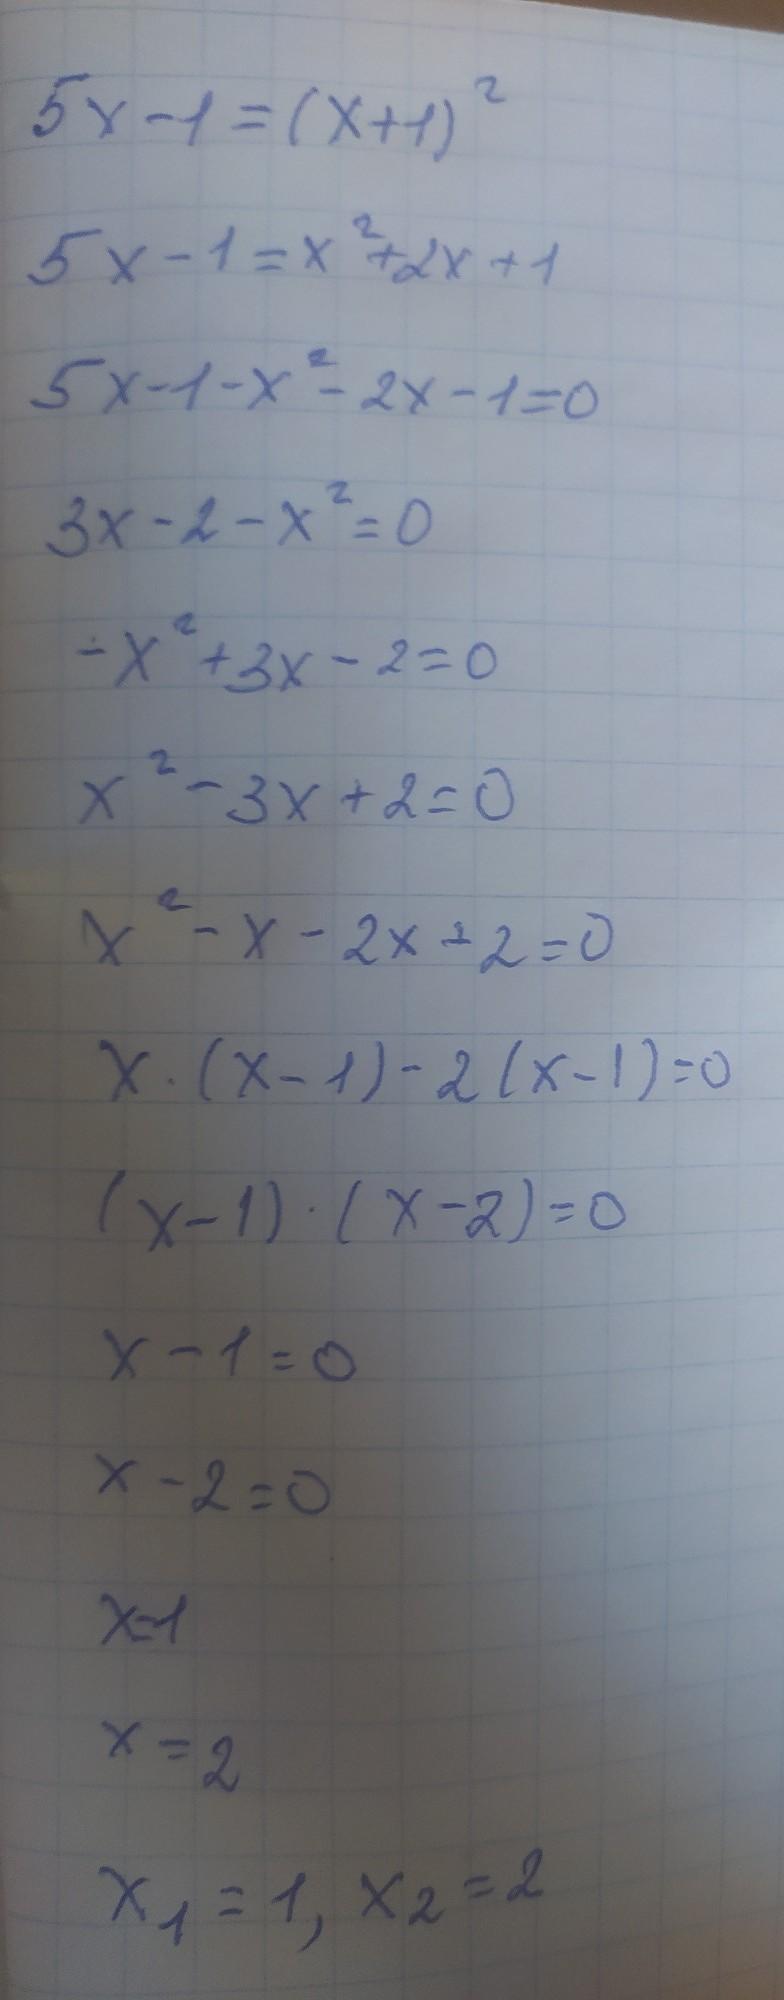 5x-1=(x+1)²
5x-1=x²+2x+1
5x-1-x²-2x-1=0
3x-2-x²=0
-x²+3x-2=0
x²-3x+2=0
x²-x-2x+2=0
x·(x-1)-2(x-1)=0
(x-1)·(x-2)=0
x-1=0
x-2=0
x=1
x=2
x₁=1, x₂=2